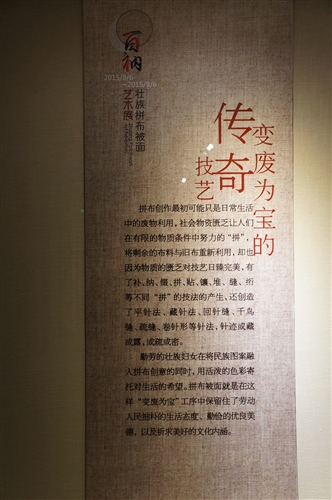 百衲
2015/8/6
~2015/9/6
壮族拼布被面
艺术展
变废为宝的
传奇
技艺
拼布创作最初可能只是日常生活
中的废物利用，社会物资匮乏让人们
在有限的物质条件中努力的“拼”，
将剩余的布料与旧布重新利用，却也
因为物质的匮乏对技艺日臻完美，有
了补、纳、缀、拼、贴、镶、堆、缝、绗
等不同“拼”的技法的产生，还创造
了平针法、藏针法、回针缝、千鸟
缝、疏缝、卷针形等针法，针迹或藏
或露，或疏或密。
勤劳的壮族妇女在将民族图案融
入拼布创意的同时，用活泼的色彩寄
托对生活的希望。拼布被面就是在这
样“变废为宝”工序中保留住了劳动
人民拙朴的生活态度、勤俭的优良美
德，以及祈求美好的文化内涵。